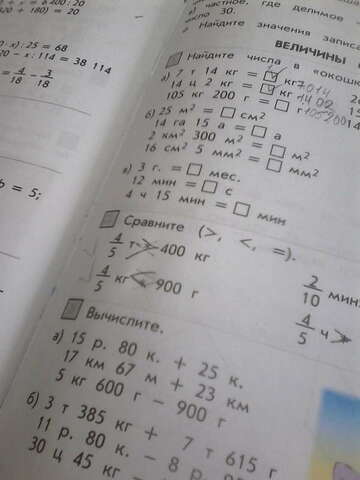 = 20
320 + 180) = 20
· x) : 25 = 68
20 − x : 114 = 38 114
= 4/18 − 3/18
b = 5;
в) частное, где делимое
число 30.
Найдите значения
ВЕЛИЧИНЫ
Найдите числа в «окошк
а) 7 т 14 кг = □ кг 7014
14 ц 2 кг = □ кг 1402
105 кг 200 г = □ г 105200
б) 25 м² = □ см²
14 га 15 а = □ а
2 км² 300 м² = □ м²
16 см² 5 мм² = □ мм²
в) 3 г. = □ мес.
12 мин = □ с
4 ч 15 мин = □ мин
Сравните (>, <, =).
4/5 т > 400 кг
4/5 кг < 900 г
2/10 мин
4/5 ч >
Вычислите.
а) 15 р. 80 к. + 25 к.
17 км 67 м + 23 км
5 кг 600 г − 900 г
б) 3 т 385 кг + 7 т 615 г
11 р. 80 к. − 8 р.
30 ц 45 кг